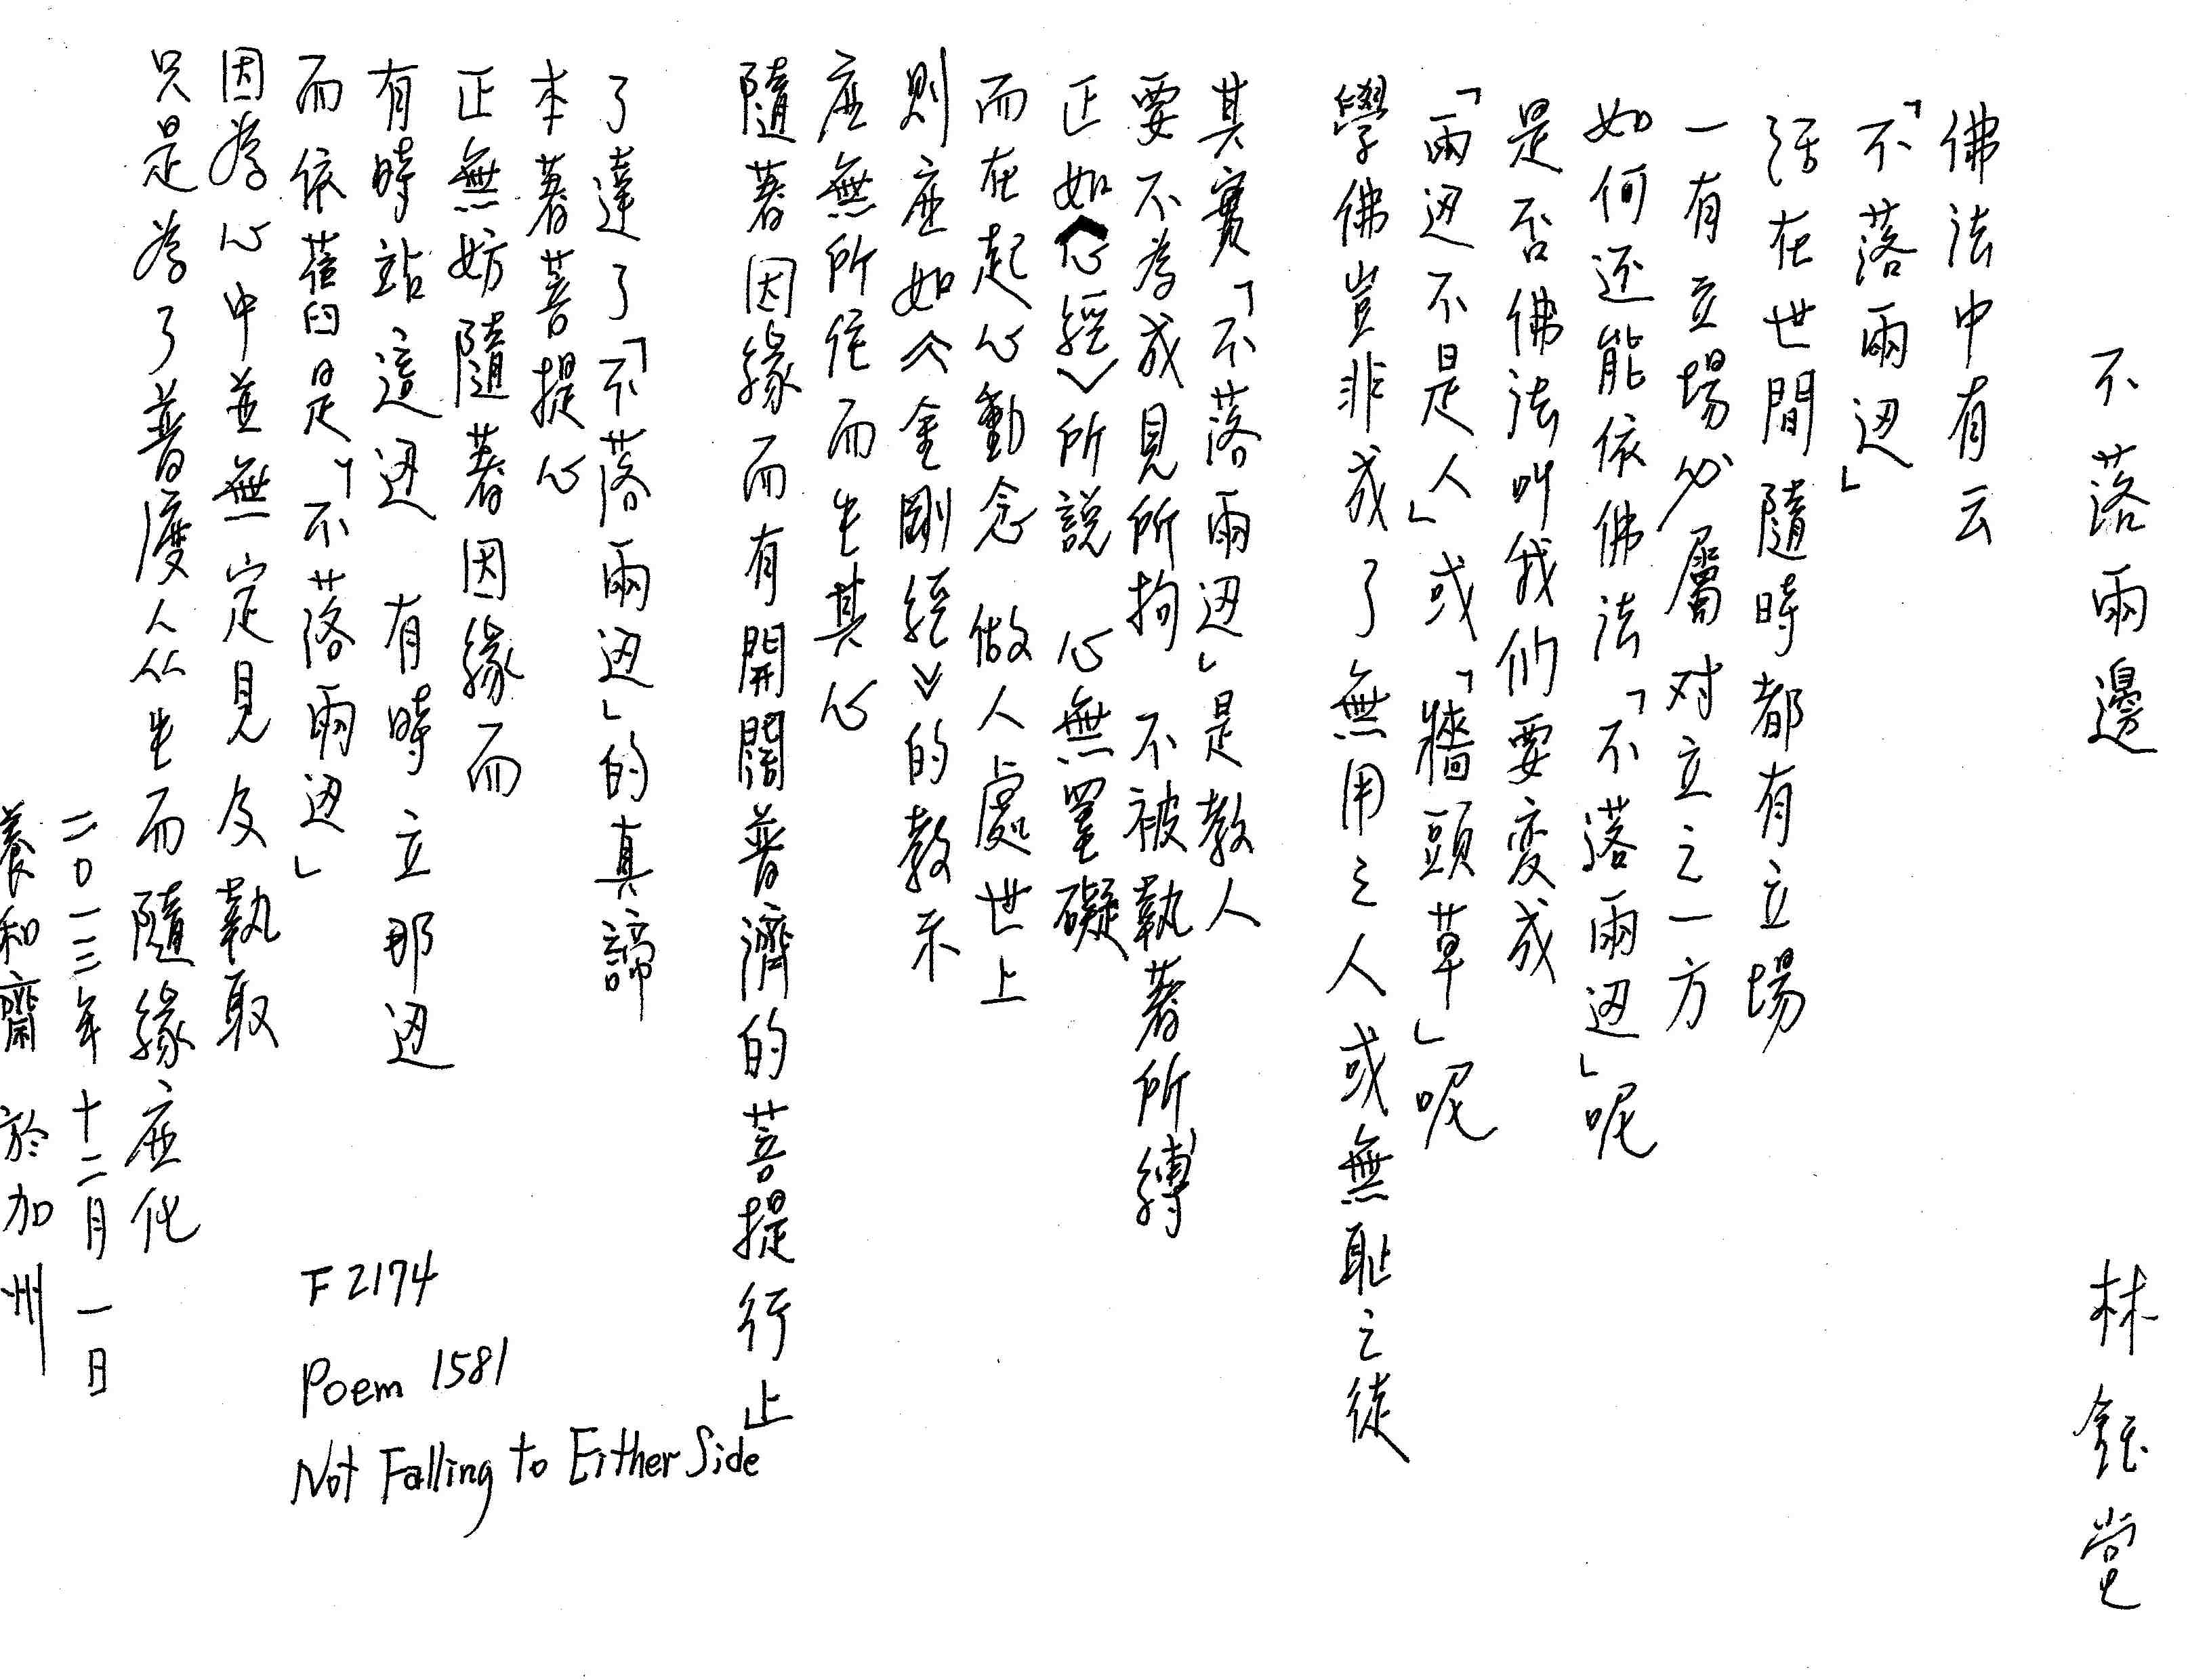 不落兩邊 林鈺堂
佛法中有云
「不落兩边」
活在世間隨時都有立場
一有立場必屬对立之一方
如何还能依佛法「不落兩边」呢
是否佛法叫我们要变成
「兩边不是人」或「牆頭草」呢
學佛豈非成了無用之人或無恥之徒
其實「不落兩边」是教人
要不為成見所拘 不被執著所縛
正如《心經》所說 心無罣礙
而在起心動念 做人處世上
則应如《金剛經》的教示
应無所住而生其心
隨著因緣而有開闊普濟的菩提行止
了達了「不落兩边」的真諦
本著菩提心
正無妨隨著因緣而
有時站這边 有時立那边
而依舊是「不落兩边」
因為心中並無定見及執取
只是為了普度人众生而隨緣应化
二〇一三年十二月一日
養和齋 於加州
F 2174
Poem 1581
Not Falling to Either Side